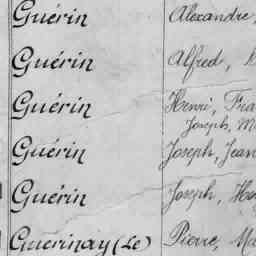 Guérin Alexandre,
Guérin Alfred,
Guérin Henri, Fra
Joseph, M
Guérin Joseph, Jean
Guérin Joseph, He
Guerinay (Le) Pierre, Ma